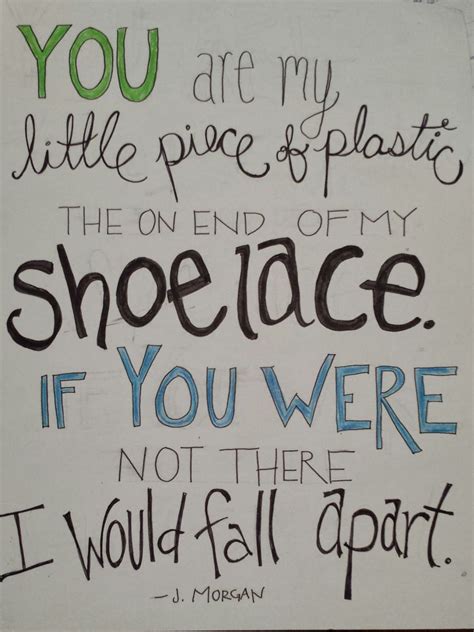 YOU are my
little piece of plastic
THE ON END OF MY
shoelace.
IF YOU WERE
NOT THERE
I would fall apart.
-J. MORGAN